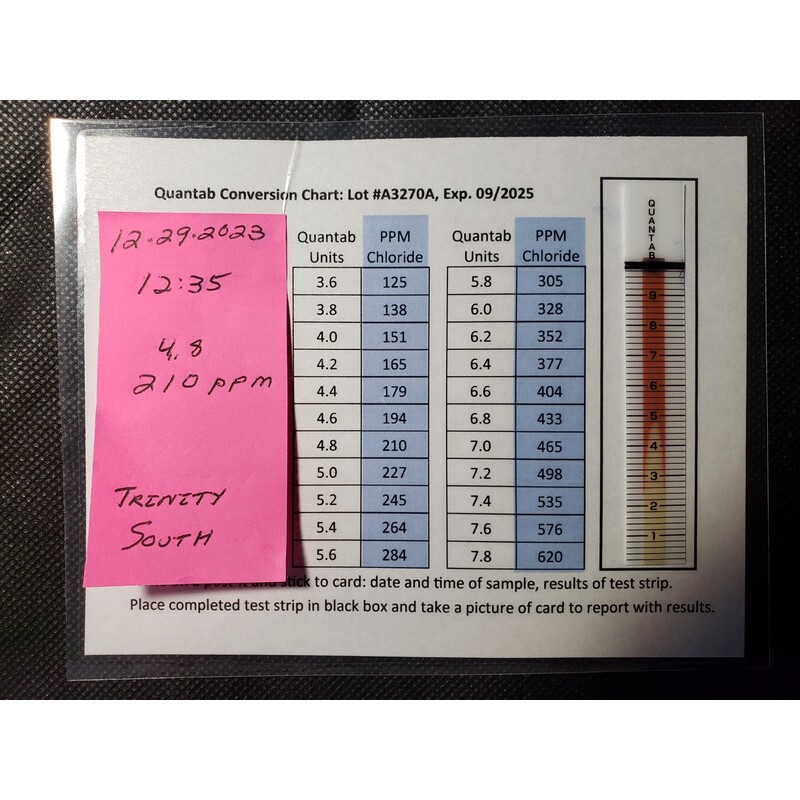 Quantab Conversion Chart: Lot #A3270A, Exp. 09/2025
12.29.2023
12:35
4.8
210 ppm
TRINITY
SOUTH
Quantab Units PPM Chloride
3.6 125
3.8 138
4.0 151
4.2 165
4.4 179
4.6 194
4.8 210
5.0 227
5.2 245
5.4 264
5.6 284
Quantab Units PPM Chloride
5.8 305
6.0 328
6.2 352
6.4 377
6.6 404
6.8 433
7.0 465
7.2 498
7.4 535
7.6 576
7.8 620
QUANTAB
9
8
7
6
5
4
3
2
1
post it and stick to card: date and time of sample, results of test strip.
Place completed test strip in black box and take a picture of card to report with results.